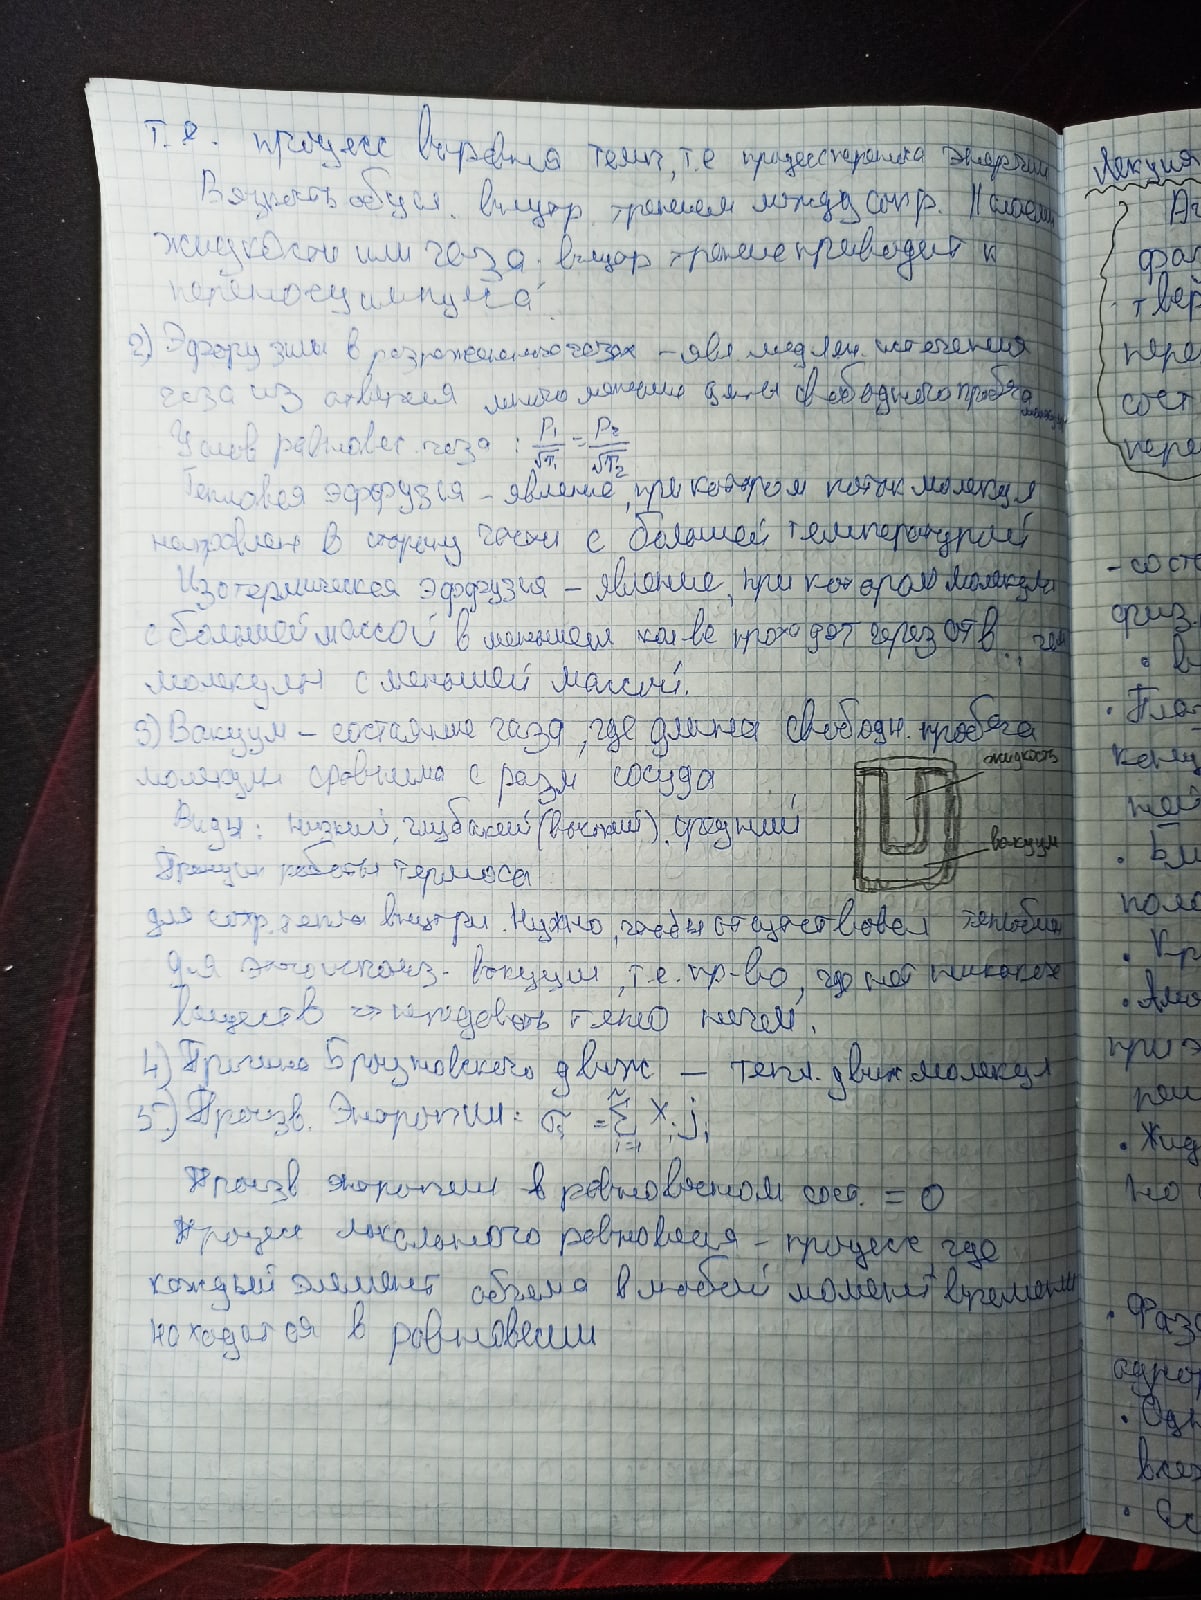 т.е. процесс выравно темп, т.е процесс переноса энергии
Вязкость обусл. внутр. трением между сопр. || слоями
жидкости или газа. внутр трение приводит к
переносу импульса.
2) Эффузии в разряженного газах – явл медлен. истечения
газа из отверстия много меньше длины свободного пробега
молекул
Услов равновес. газа : P₁/√T₁ = P₂/√T₂
Тепловая эффузия – явление, при котором поток молекул
направлен в сторону части с большей температурией
Изотермическая эффузия – явление, при котором молекулы
с большей массой в меньшем кол-ве проходят через отв., чем
молекулы с меньшей массой.
3) Вакуум – состояние газа, где длина свободн. пробега
молекулы сравнима с разм сосуда
жидкость
Виды: низкий, глубокий (высокий), средний
вакуум
Принцип работы термоса
для сохр. тепла внутри. Нужно, чтобы отсутствовал теплобмен
Для этого использ- вакуум, т.е. пр-во, где нет никаких
веществ => передавать тепло нечем.
4) Причина Броуновского движ – тепл. движ молекул
5.) Произв. Энтропии: σ = Σ Xᵢ jᵢ
i=1
Произв энтропии в равновесном сост. = 0
Процесс локального равновесия – процесс, где
каждый элемент объема в любой момент времени
находится в равновесии
Лекция
фаз
твер
пере
сост
пере
- сост
физ.
при
Жид
но
Фаз
Одн
всех